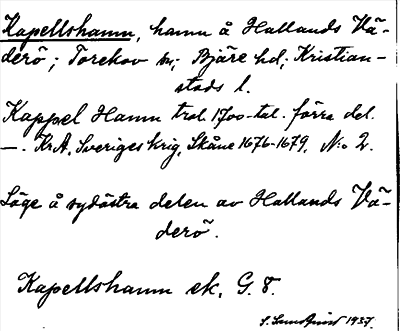 Kapellshamn, hamn å Hallands Vä-
derö; Torekov sn; Bjäre hd; Kristian-
stads l.
Kappel Hamn trol. 1700-tal. förra del.
—. KrA, Sveriges krig, Skåne 1676-1679, N:o 2.
Läge å sydöstra delen av Hallands Vä-
derö.
Kapellshamn ek. G. 8.
S. Sundqvist 1937.